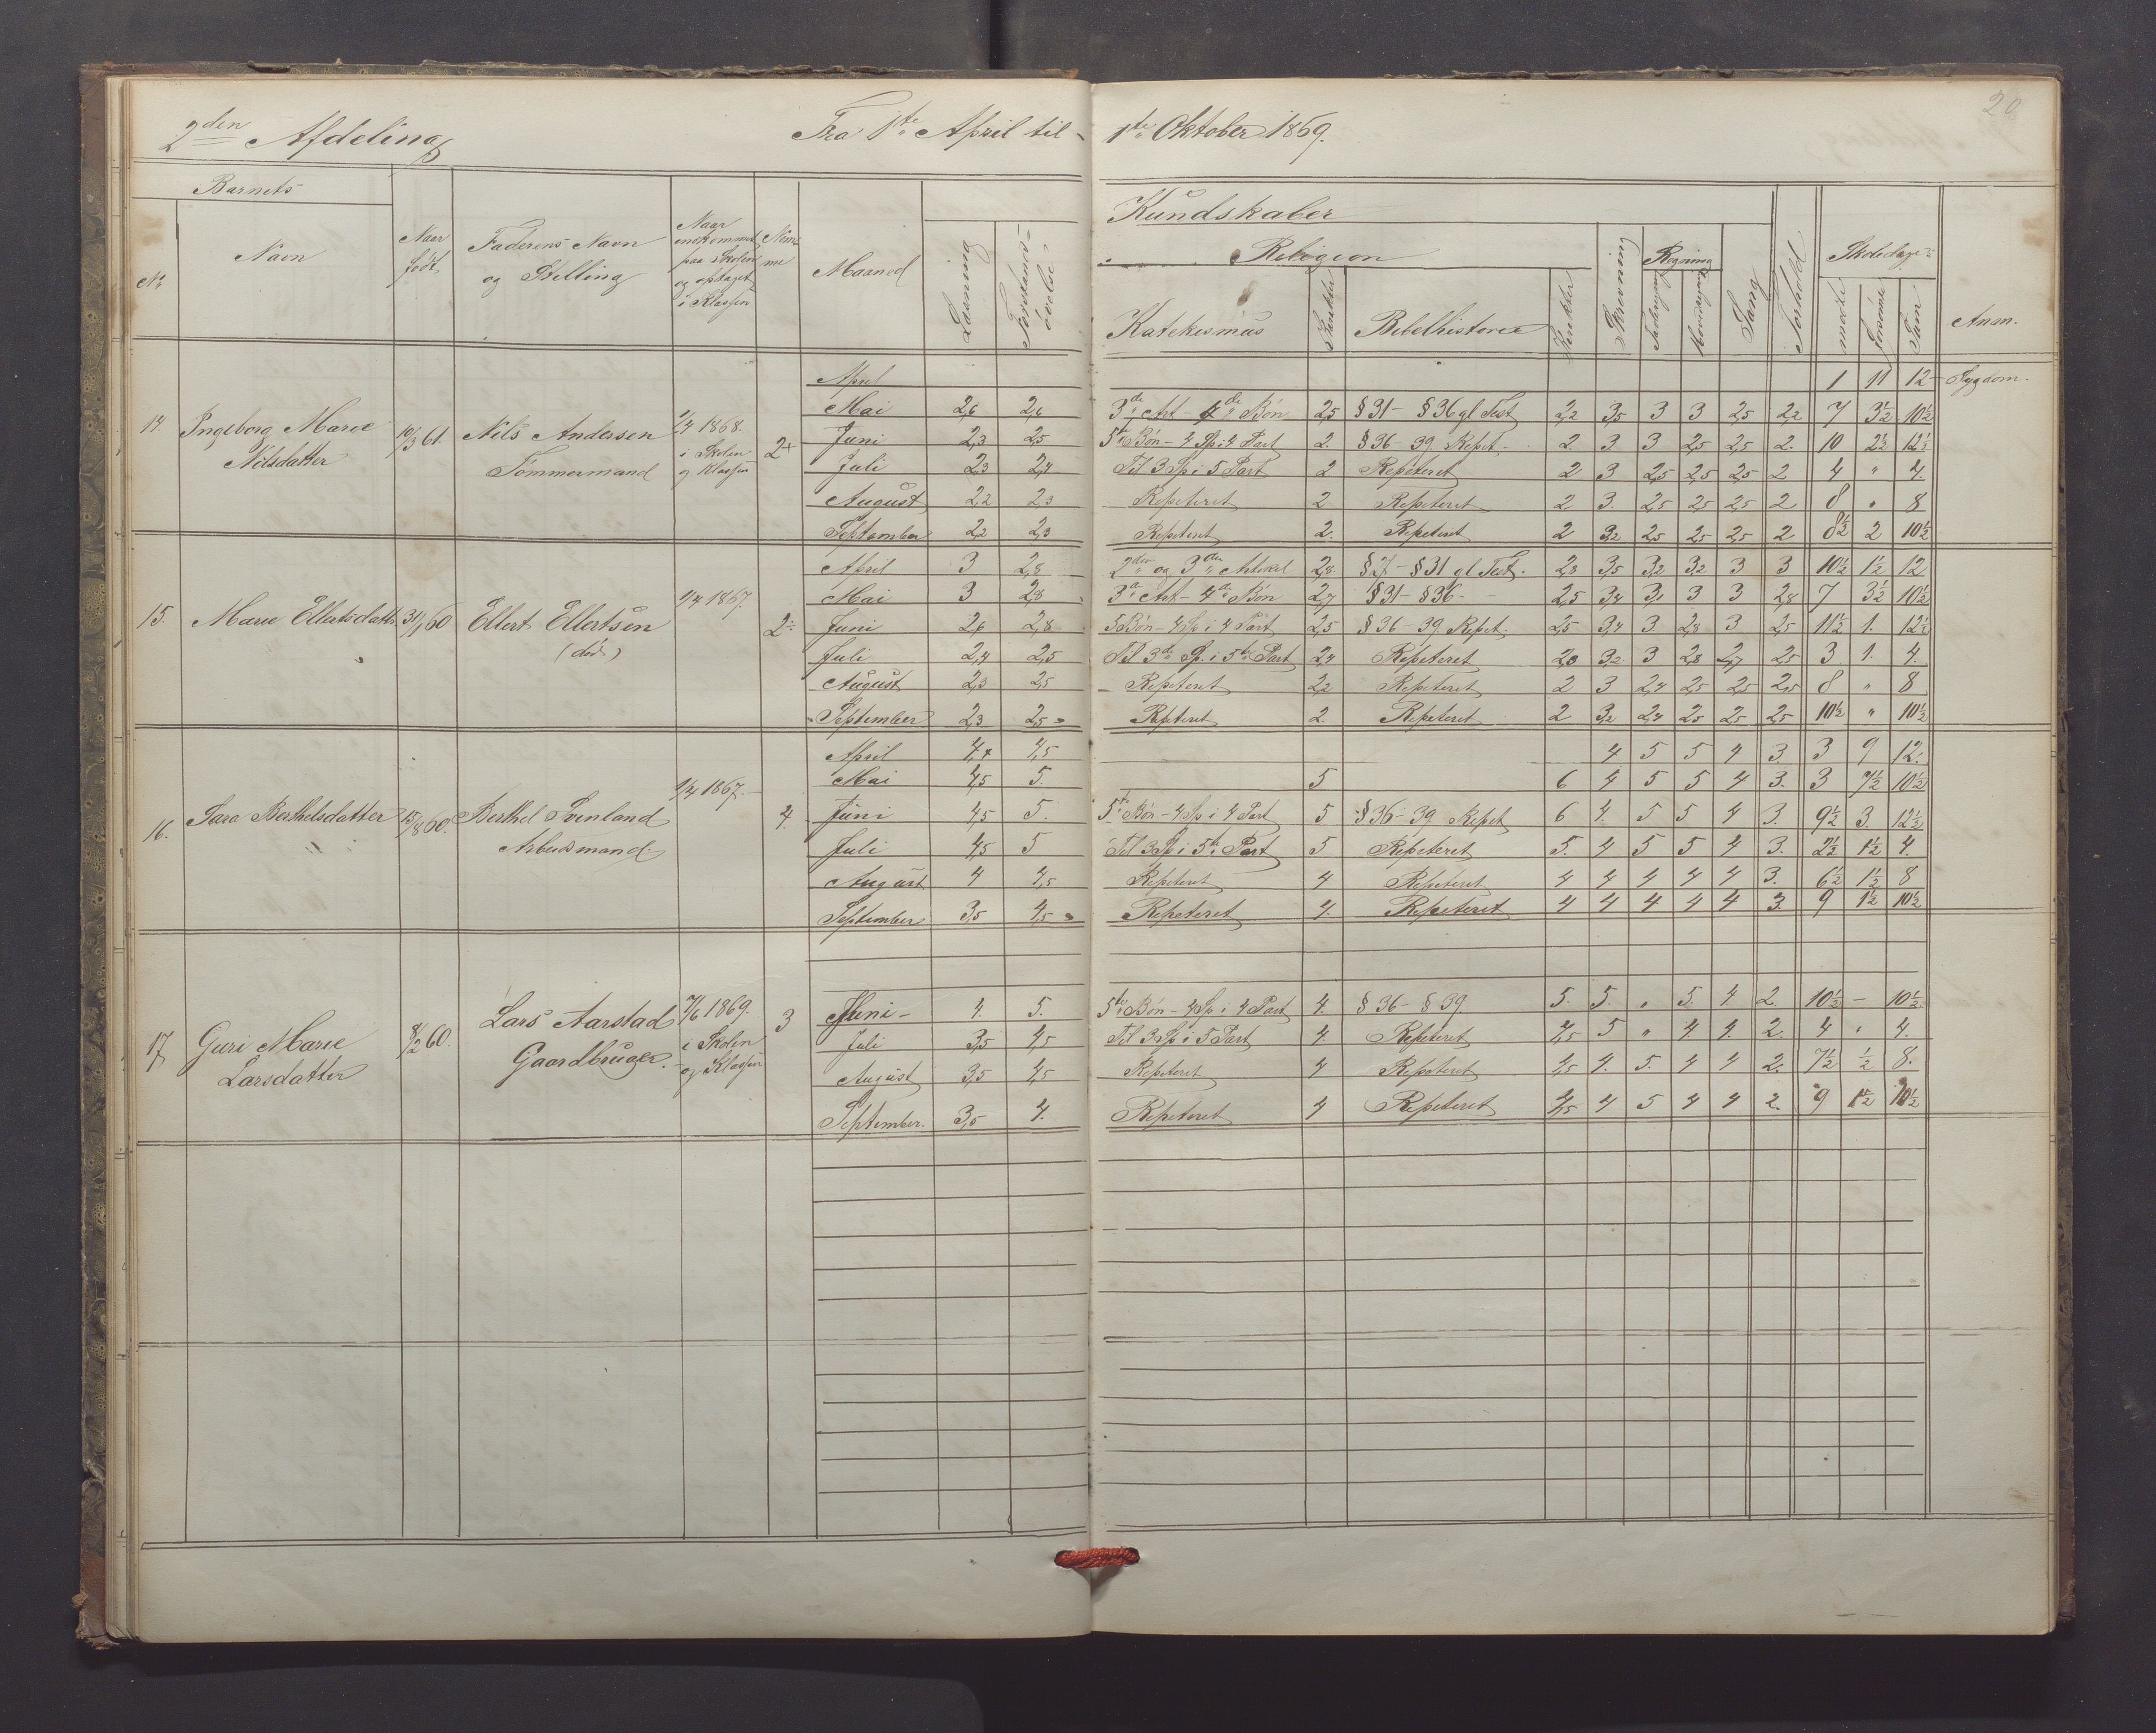 20
2den Afdeling Fra 1ste April til 1ste Oktober 1869.
Barnets
No Navn Naar født Faderens Navn og Stilling Naar indkommet paa Skolen og optaget i Klassen Nemme Maaned Læsning Forstandsøvelse
Kundskaber
Religion
Katekismus Karakter Bibelhistorie Karakter Skrivning Regning Sang Forhold Skoledage Anm.
mødte forsømte Sum
April 1 11 12 Sygdom.
Mai 2,6 2,6 3die Art - 4de Bøn 2,5 § 31 - § 36 gl Test 2,2 3,5 3 3 2,5 2,2 7 3½ 10½
14. Ingeborg Marie Nilsdatter 10/3 61. Nils Andersen Tømmermand 1/4 1868. i Skolen og Klassen 2+
Juni 2,3 2,5 5te Bøn - 4 Sp i 4 Part 2. § 36 - 39. Repet. 2. 3. 3 2,5 2,5 2. 10 2½ 12½
Juli 2,3 2,4 Til 3 Sp i 5 Part 2 Repeteret 2 3 2,5 2,5 2,5 2 4 " 4.
August 2,2 2,3 Repeteret 2 Repeteret 2 3. 2,5 2,5 2,5 2 8 " 8
September 2,2 2,3 Repeteret 2. Repeteret 2 3,2 2,5 2,5 2,5 2 8½ 2 10½
April 3 2,8 2den og 3die Artikel 2,8 § 27 - § 31 gl Test. 2,8 3,5 3,2 3,2 3 3 10½ 1½ 12
Mai 3 2,8 3die Art - 4de Bøn 2,7 § 31 - § 36 - 2,5 3,4 3,1 3 3 2,8 7 3½ 10½
15. Marie Ellertsdatter 31/1 60 Ellert Ellertsen (død.) 1/4 1867. 2÷
Juni 2,6 2,8 5 Bøn - 4 Sp i 4 Part 2,5 § 36 - 39. Repet. 2,5 3,4 3 2,8 3 2,5 11½ 1. 12½
Juli 2,4 2,5 Til 3de Sp. i 5te Part 2,4 Repeteret 2,0 3,2 3 2,8 2,7 2,5 3 1. 4.
August 2,3 2,5 Repeteret 2,2 Repeteret 2 3 2,4 2,5 2,5 2,5 8 " 8
September 2,3 2,5 Repteret 2. Repeteret 2 3,2 2,4 2,5 2,5 2,5 10½ " 10½
April 4,4 4,5 4 5 5 4 3 3 9 12.
Mai 4,5 5. 5 6 4 5 5 4 3. 3 7½ 10½
16. Sara Berthelsdatter 15/8 60. Berthel Svenland Arbeidsmand. 1/4 1867. 4.
Juni 4,5 5. 5te Bøn - 4 Sp i 4 Part 5 § 36 - 39. Repet 6 4. 5 5 4 3. 9½ 3. 12½
Juli 4,5 5 Til 3 Sp i 5te Part 5 Repeteret 5. 4 5 5 4 3. 2½ 1½ 4.
August 4 4,5 Repeteret 4 Repeteret 4 4 4 4 4 3. 6½ 1½ 8
September 3,5 4,5 Repeteret 4. Repeteret 4 4 4 4 4 3. 9 1½ 10½
17 Guri Marie Larsdatter 8/2 60. Lars Aarstad Gaardbruger. 7/6 1869. i Skolen og Klassen 3
Juni - 4. 5. 5te Bøn - 4 Sp i 4 Part 4. § 36 - § 39. 5. 5. " 5. 4 2. 10½ — 10½
Juli 3,5 4,5 Til 3 Sp i 5 Part 4. Repeteret 4,5 5 " 4. 4. 2. 4 " 4.
August 3,5 4,5 Repeteret 4 Repeteret 4,5 4. 5. 4 4 2. 7½ ½ 8.
September. 3,5 4. Repeteret 4 Repeteret 4,5 4 5 4 4 2. 9 1½ 10½